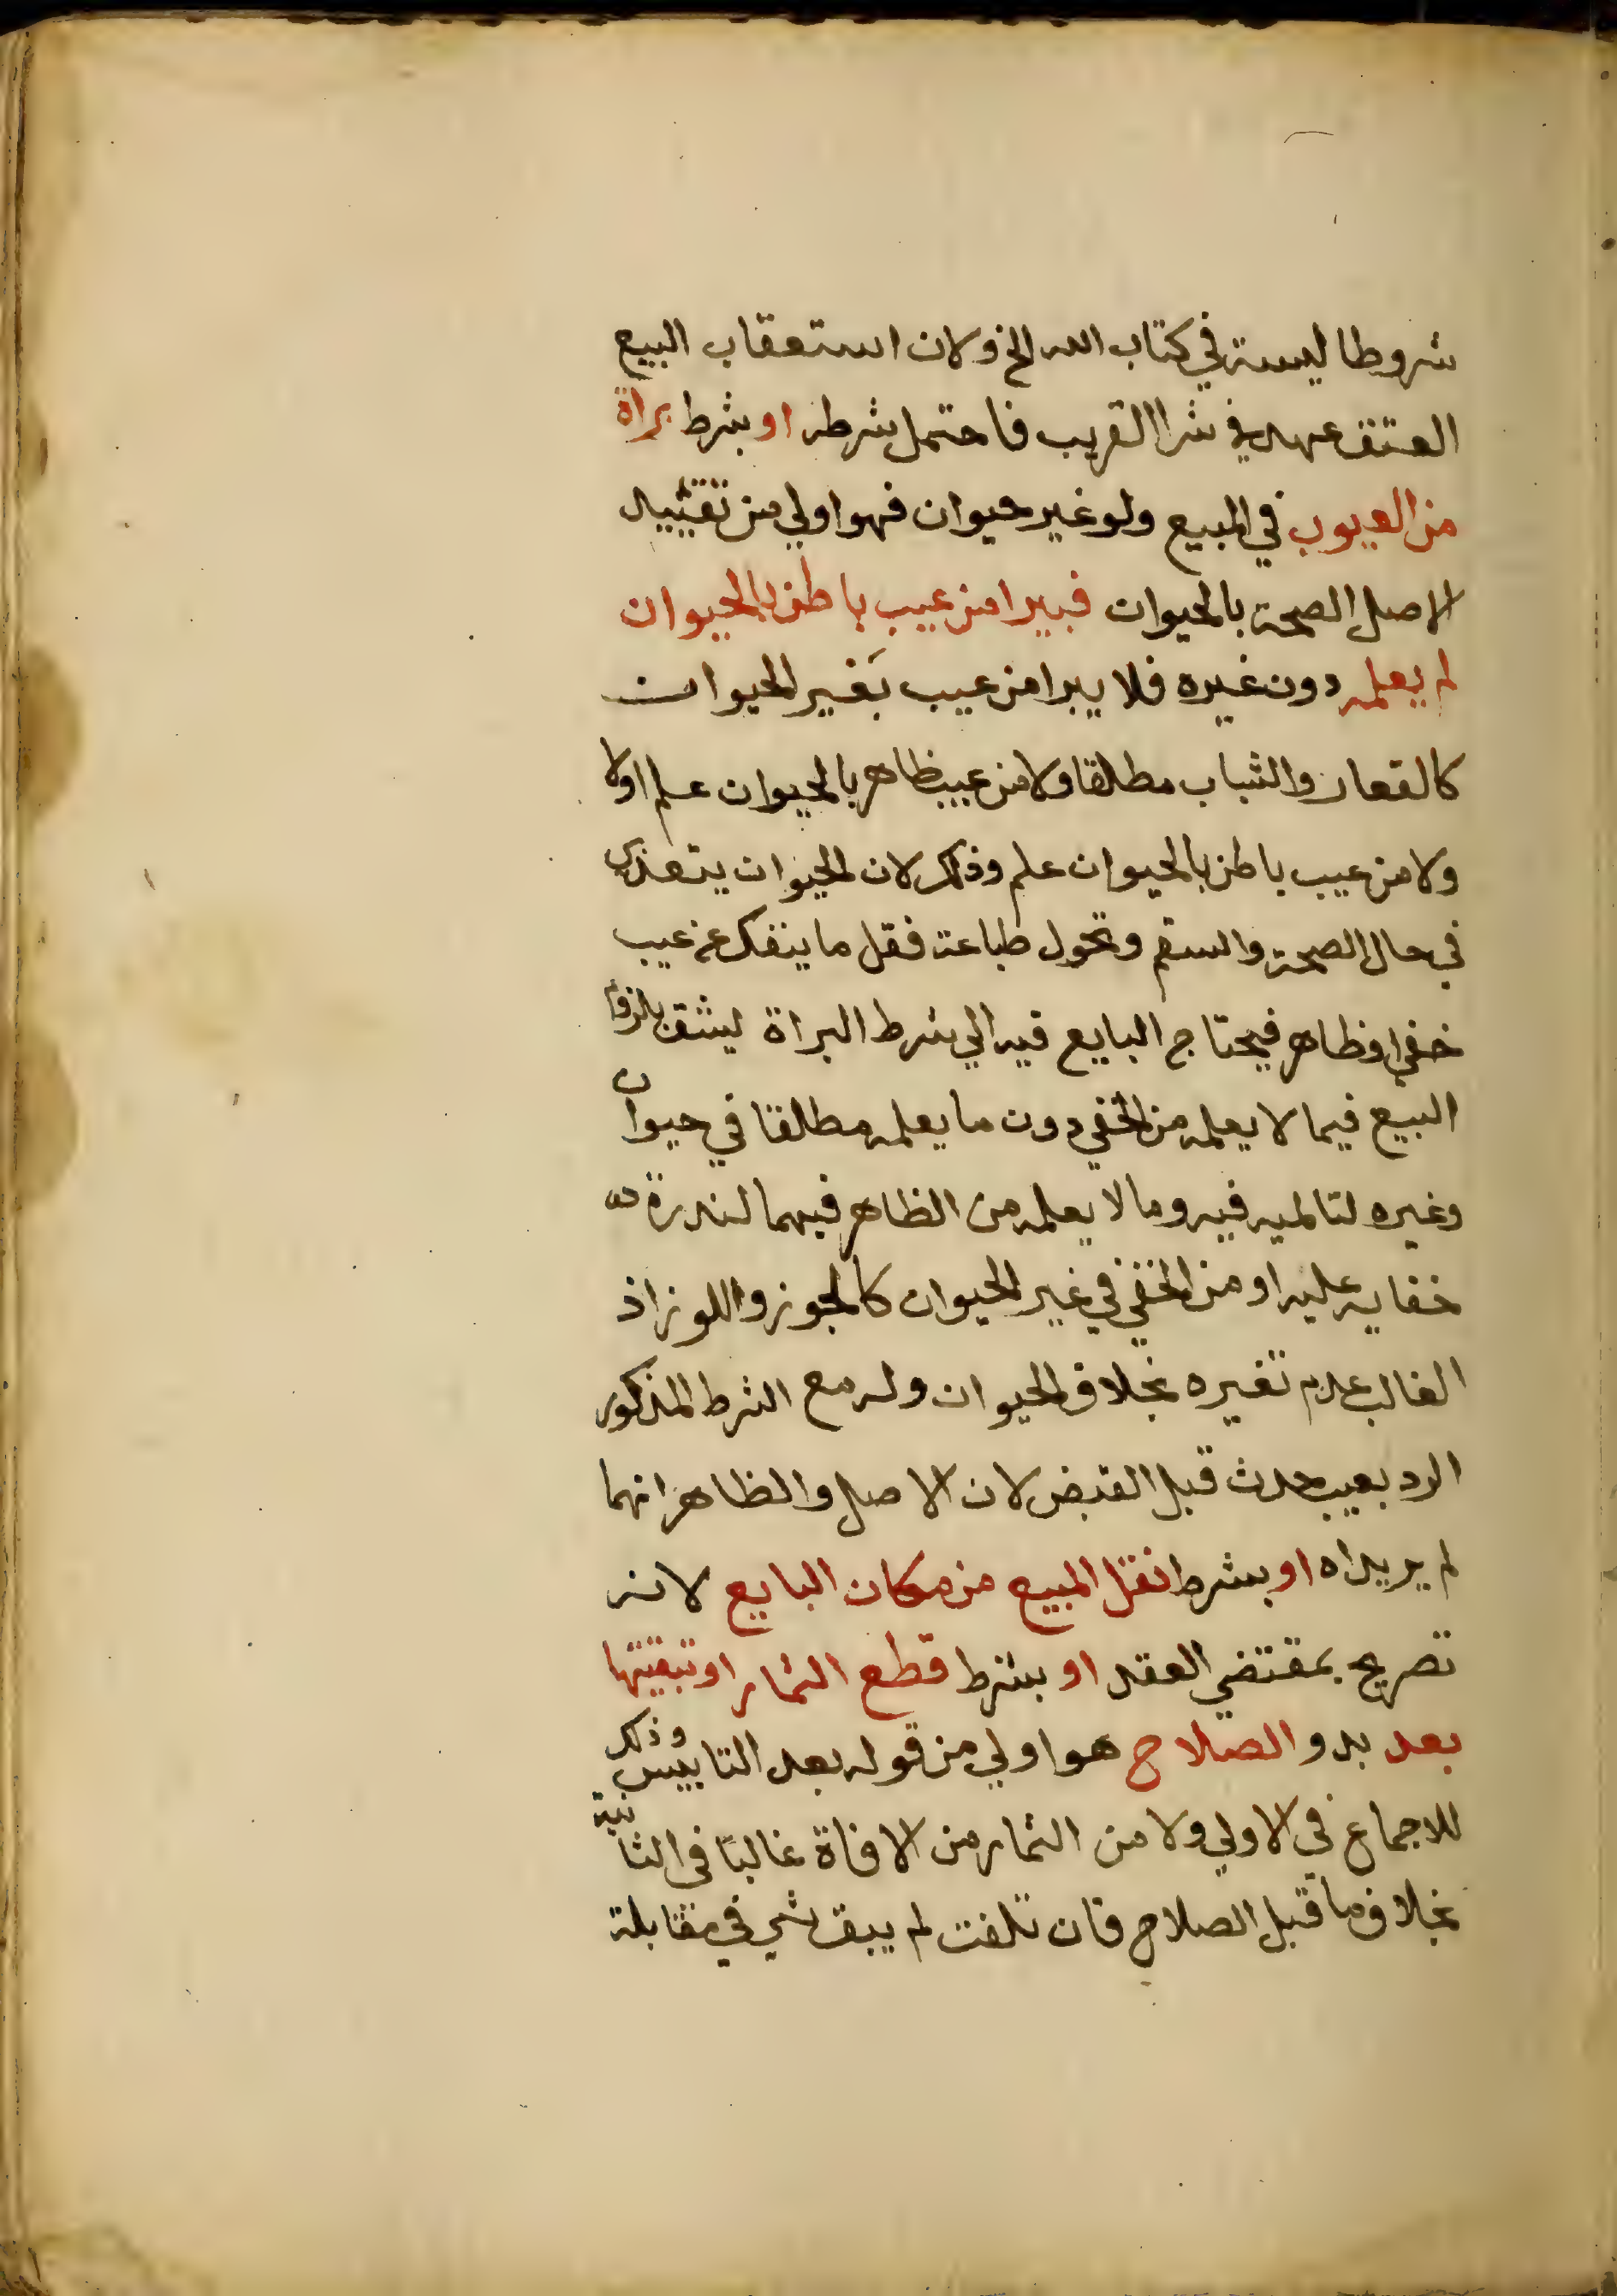 شروطا ليست في كتاب الله الخ ولان استعقاب البيع
العتق عهد في شرا القريب فاحتمل شرطه او بشرط براة
من العيوب في المبيع ولو غير حيوان فهو اولي من تقييد
الاصل الصحة بالحيوان فيبرا من عيب باطن بالحيوان
لم يعلمه دون غيره فلا يبرا من عيب بغير الحيوان
كالقعار والثياب مطلقا ولا من عيب ظاهر بالحيوان علم اولا
ولا من عيب باطن بالحيوان علم وذلك لان الحيوان يتغذي
في حال الصحة والسقم وتحول طباعه فقل ما ينفك عن عيب
خفي او ظاهر فيحتاج البايع فيه الي شرط البراة ليثق بلزوم
البيع فيما لا يعلمه من الخفي دون ما يعلمه مطلقا في حيوان
وغيره لتلبيسه فيه وما لا يعلمه من الظاهر فيهما لندرة
خفايه عليه او من الخفي في غير الحيوان كالجوز واللوز اذ
الغالب عدم تغيره بخلاف الحيوان وله مع الشرط المذكور
الرد بعيب حدث قبل القبض لان الاصل والظاهر انهما
لم يريداه او بشرط نقل المبيع من مكان البايع لانه
تصريح بمقتضي العقد او بشرط قطع الثمار او تبقيتها
بعد بدو الصلاح هو اولي من قوله بعد التابير وذلك
للاجماع في الاولي ولا من الثمار من الافاة غالبا في الثانية
بخلاف ما قبل الصلاح فان تلفت لم يبق شي في مقابلة